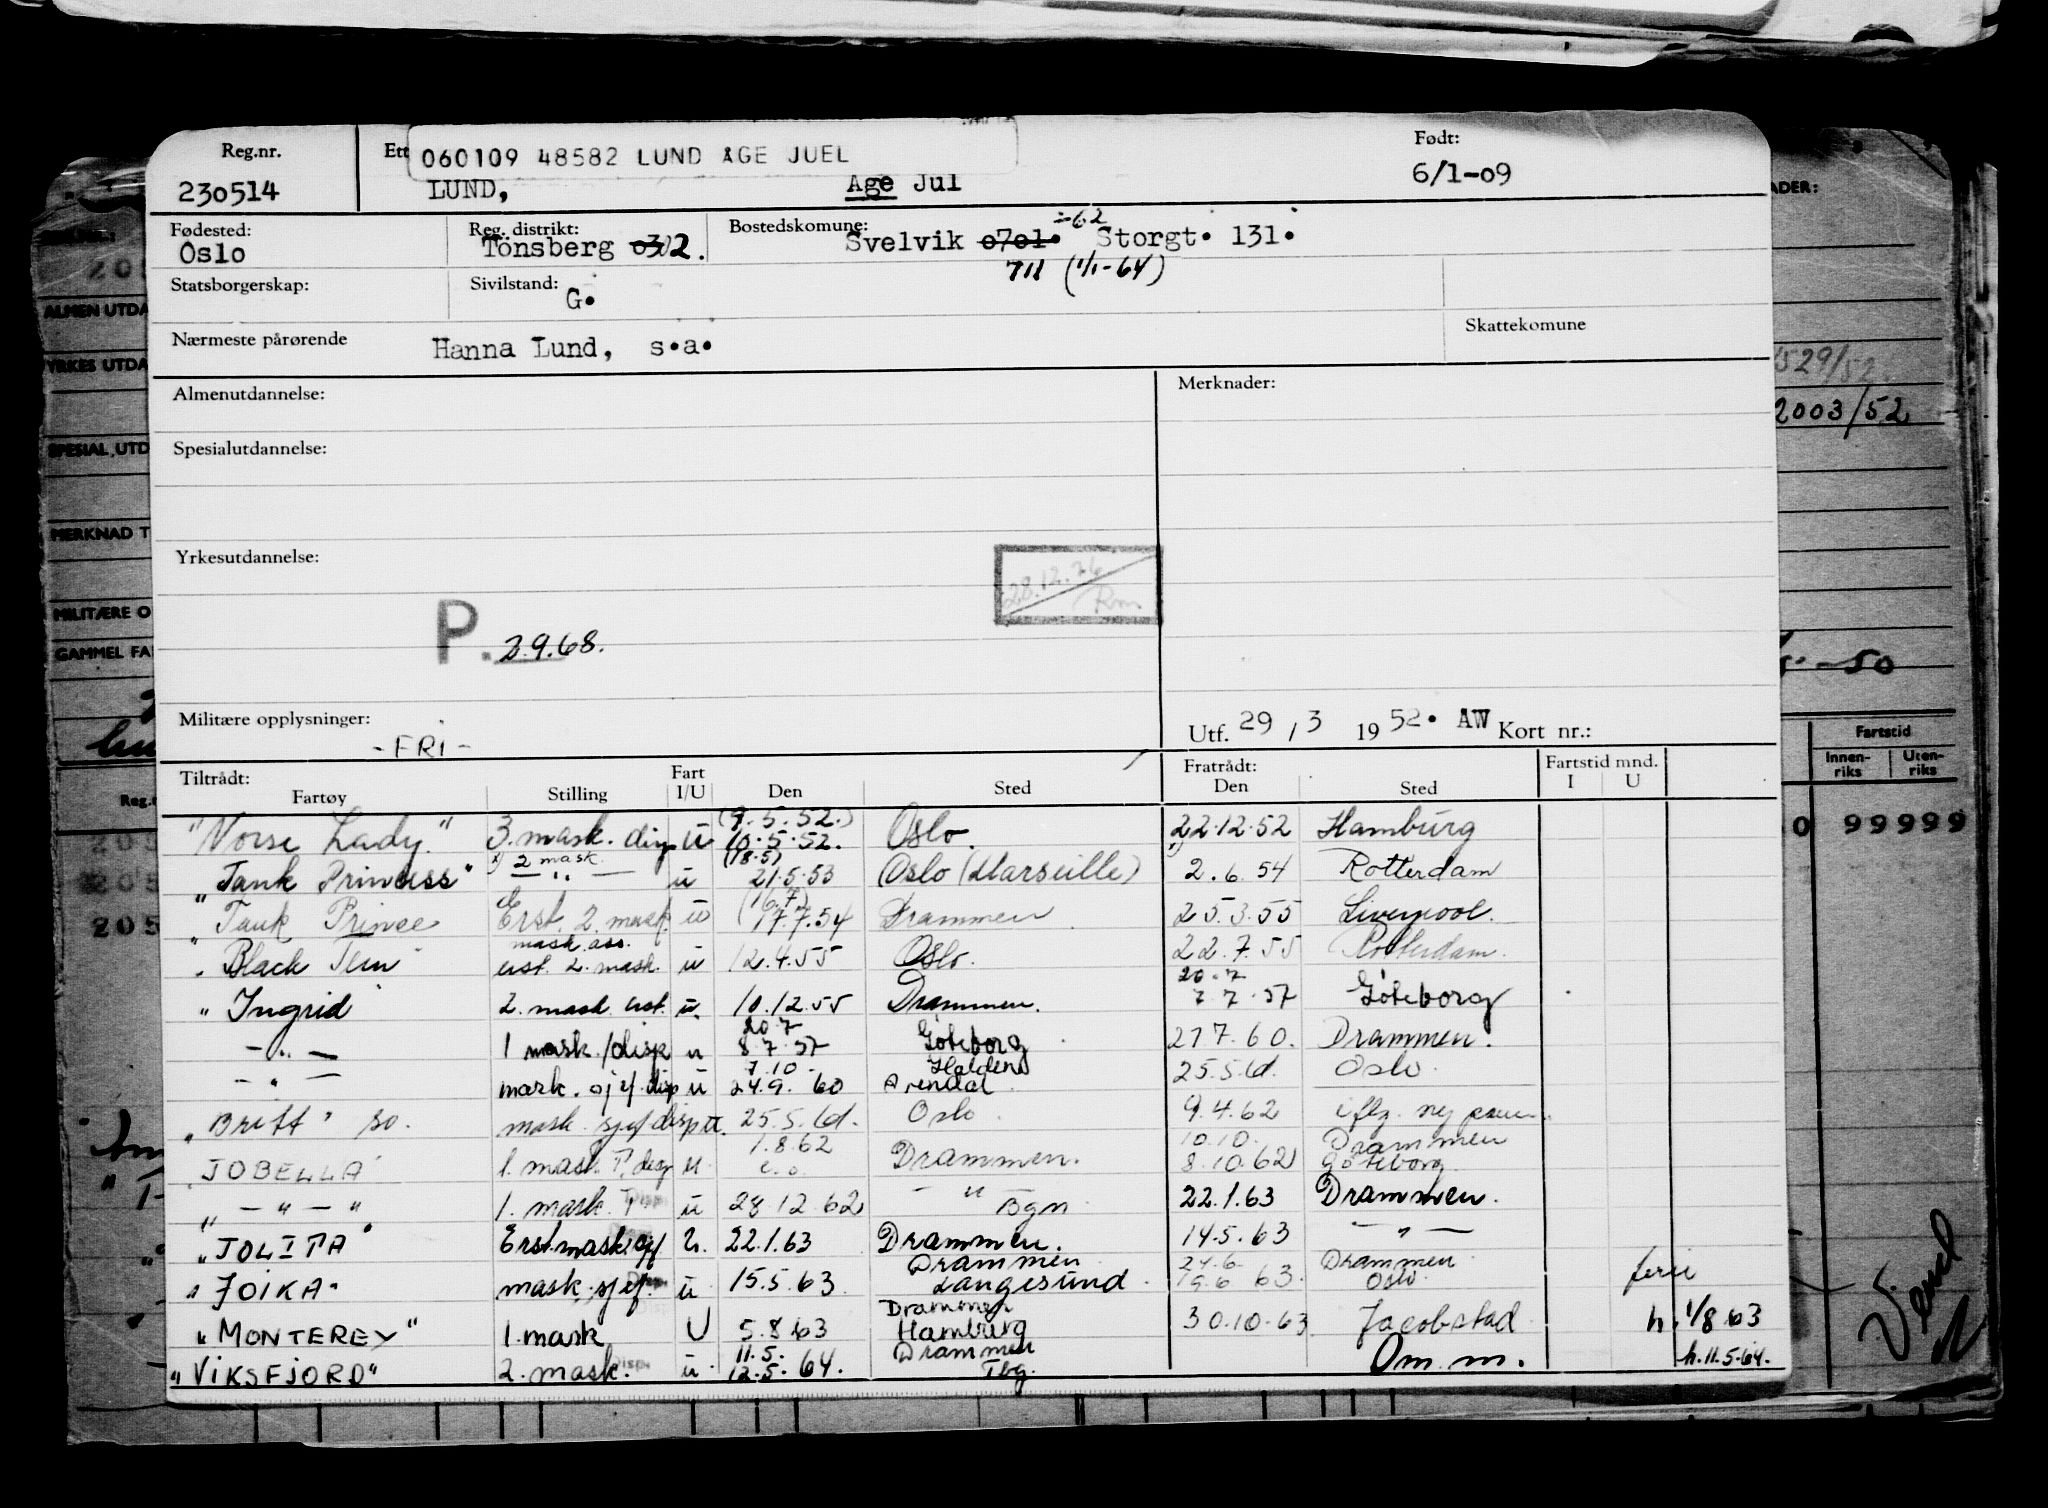 Reg.nr. Ett 060109 48582 LUND ÅGE JUEL Født:
230514 LUND, Age Jul 6/1-09
Fødested: Reg. distrikt: Bostedskomune: -62
Oslo Tönsberg 0302. Svelvik o7o1. Storgt. 131.
711 (1/1-64)
Statsborgerskap: Sivilstand: G.
Nærmeste pårørende Hanna Lund, s.a. Skattekomune
Almenutdannelse: Merknader:
Spesialutdannelse:
Yrkesutdannelse:
28.12.76
Rm
P. 2.9.68.
Militære opplysninger: -FRI- Utf. 29/3 1952. AW Kort nr.:
Tiltrådt: Fart Fratrådt: Fartstid mnd.
Fartøy Stilling I/U Den Sted Den Sted I U
(7.5.52.)
"Norse Lady" 3. mask. disp u 10.5.52. Oslo. 22.12.52 Hamburg
2 mask. (18.5)
"Tank Princess" — " — u 21.5.53 Oslo (Marseille) 2.6.54 Rotterdam
(16.7)
"Tank Prince Erst. 2. mask. u 17.7.54 Drammen 25.3.55 Liverpool.
mask. ass.
"Black Tern" erst. 2. mask. u 12.4.55 Oslo. 22.7.55 Rotterdam.
20.7
"Ingrid" 2. mask. erst. u. 10.12.55 Drammen. 7.7.57 Göteborg
20.7
— " — 1 mask./disp u 8.7.57 Göteborg 27.7.60. Drammen.
7.10. Halden
— " — mask. sjef disp u 24.9.60 Arendal 25.5.61. Oslo.
"Britt" so. mask. sjef disp u. 25.5.61. Oslo. 9.4.62
1.8.62 10.10. Drammen
"JOBELLA" 1. mask. T. disp u. Drammen. 8.10.62 Göteborg.
" — " — " 1. mask. T. Disp. u 28.12.62 — " — Bgn 22.1.63 Drammen.
"JOLITA" Erst. mask. sjef u. 22.1.63 Drammen. 14.5.63 — " —
Drammen 24.6. Drammen
"JOIKA" mask. sjef. u 15.5.63. Langesund. 19.6.63. Oslo. ferie
Drammen
"MONTEREY" 1. mask U 5.8.63 Hamburg 30.10.63 Jacobstad h. 1/8 63
11.5. Drammen
"VIKSFJORD" 2. mask. Disp. u. 12.5.64. Tbg. Om. m. h. 11.5.64.
ADER:
ALMEN UTDA
YRKES UTDA
SPESIAL UTD
MERKNAD T
MILITÆRE O
GAMMEL FA
Reg.n
205
205
205
529/52
2003/52
-50
Fartstid
Innen-riks Uten-riks
0 99999